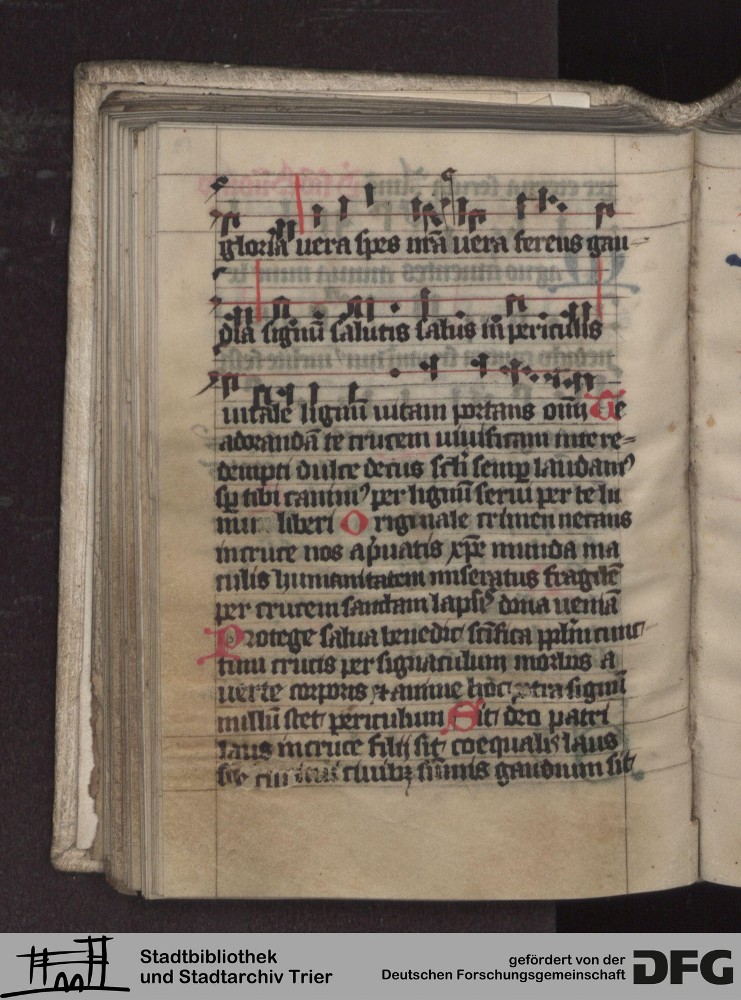 gloria uera spes nr̄a uera ferens gau-
dia signū salutis salus in periculis
uitale lignū uitam portans om̄i Te
adorandā te crucem uiuificam in te re=
dempti dulce decus sc̄li semp laudam⁹
sp tibi canim⁹ per lignū serui per te lig
mur liberi Originale crimen necans
in cruce nos a p̱uatis xp̄e munda ma
culis humanitatem miseratus fragilē
per crucem sanctam lapsis dona ueniā
Protege salua benedic sc̄ifica ppl̄m cunc
tum crucis per signaculum morbos a
uerte corporis & anime hoc ɔtra signū
nullū stet periculum Sit deo patri
laus in cruce filii sit coequalis laus
ciuibꝫ sūmis gaudium sit
Stadtbibliothek
und Stadtarchiv Trier
gefördert von der
Deutschen Forschungsgemeinschaft
DFG